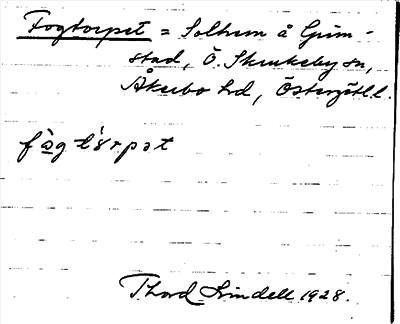 Fogtorpet = Solhem å Grim-
stad, Ö. Skrukeby sn,
Åkerbo hd, Östergötl.l.
fògtɤ́rpət
Thord Lindell 1928.